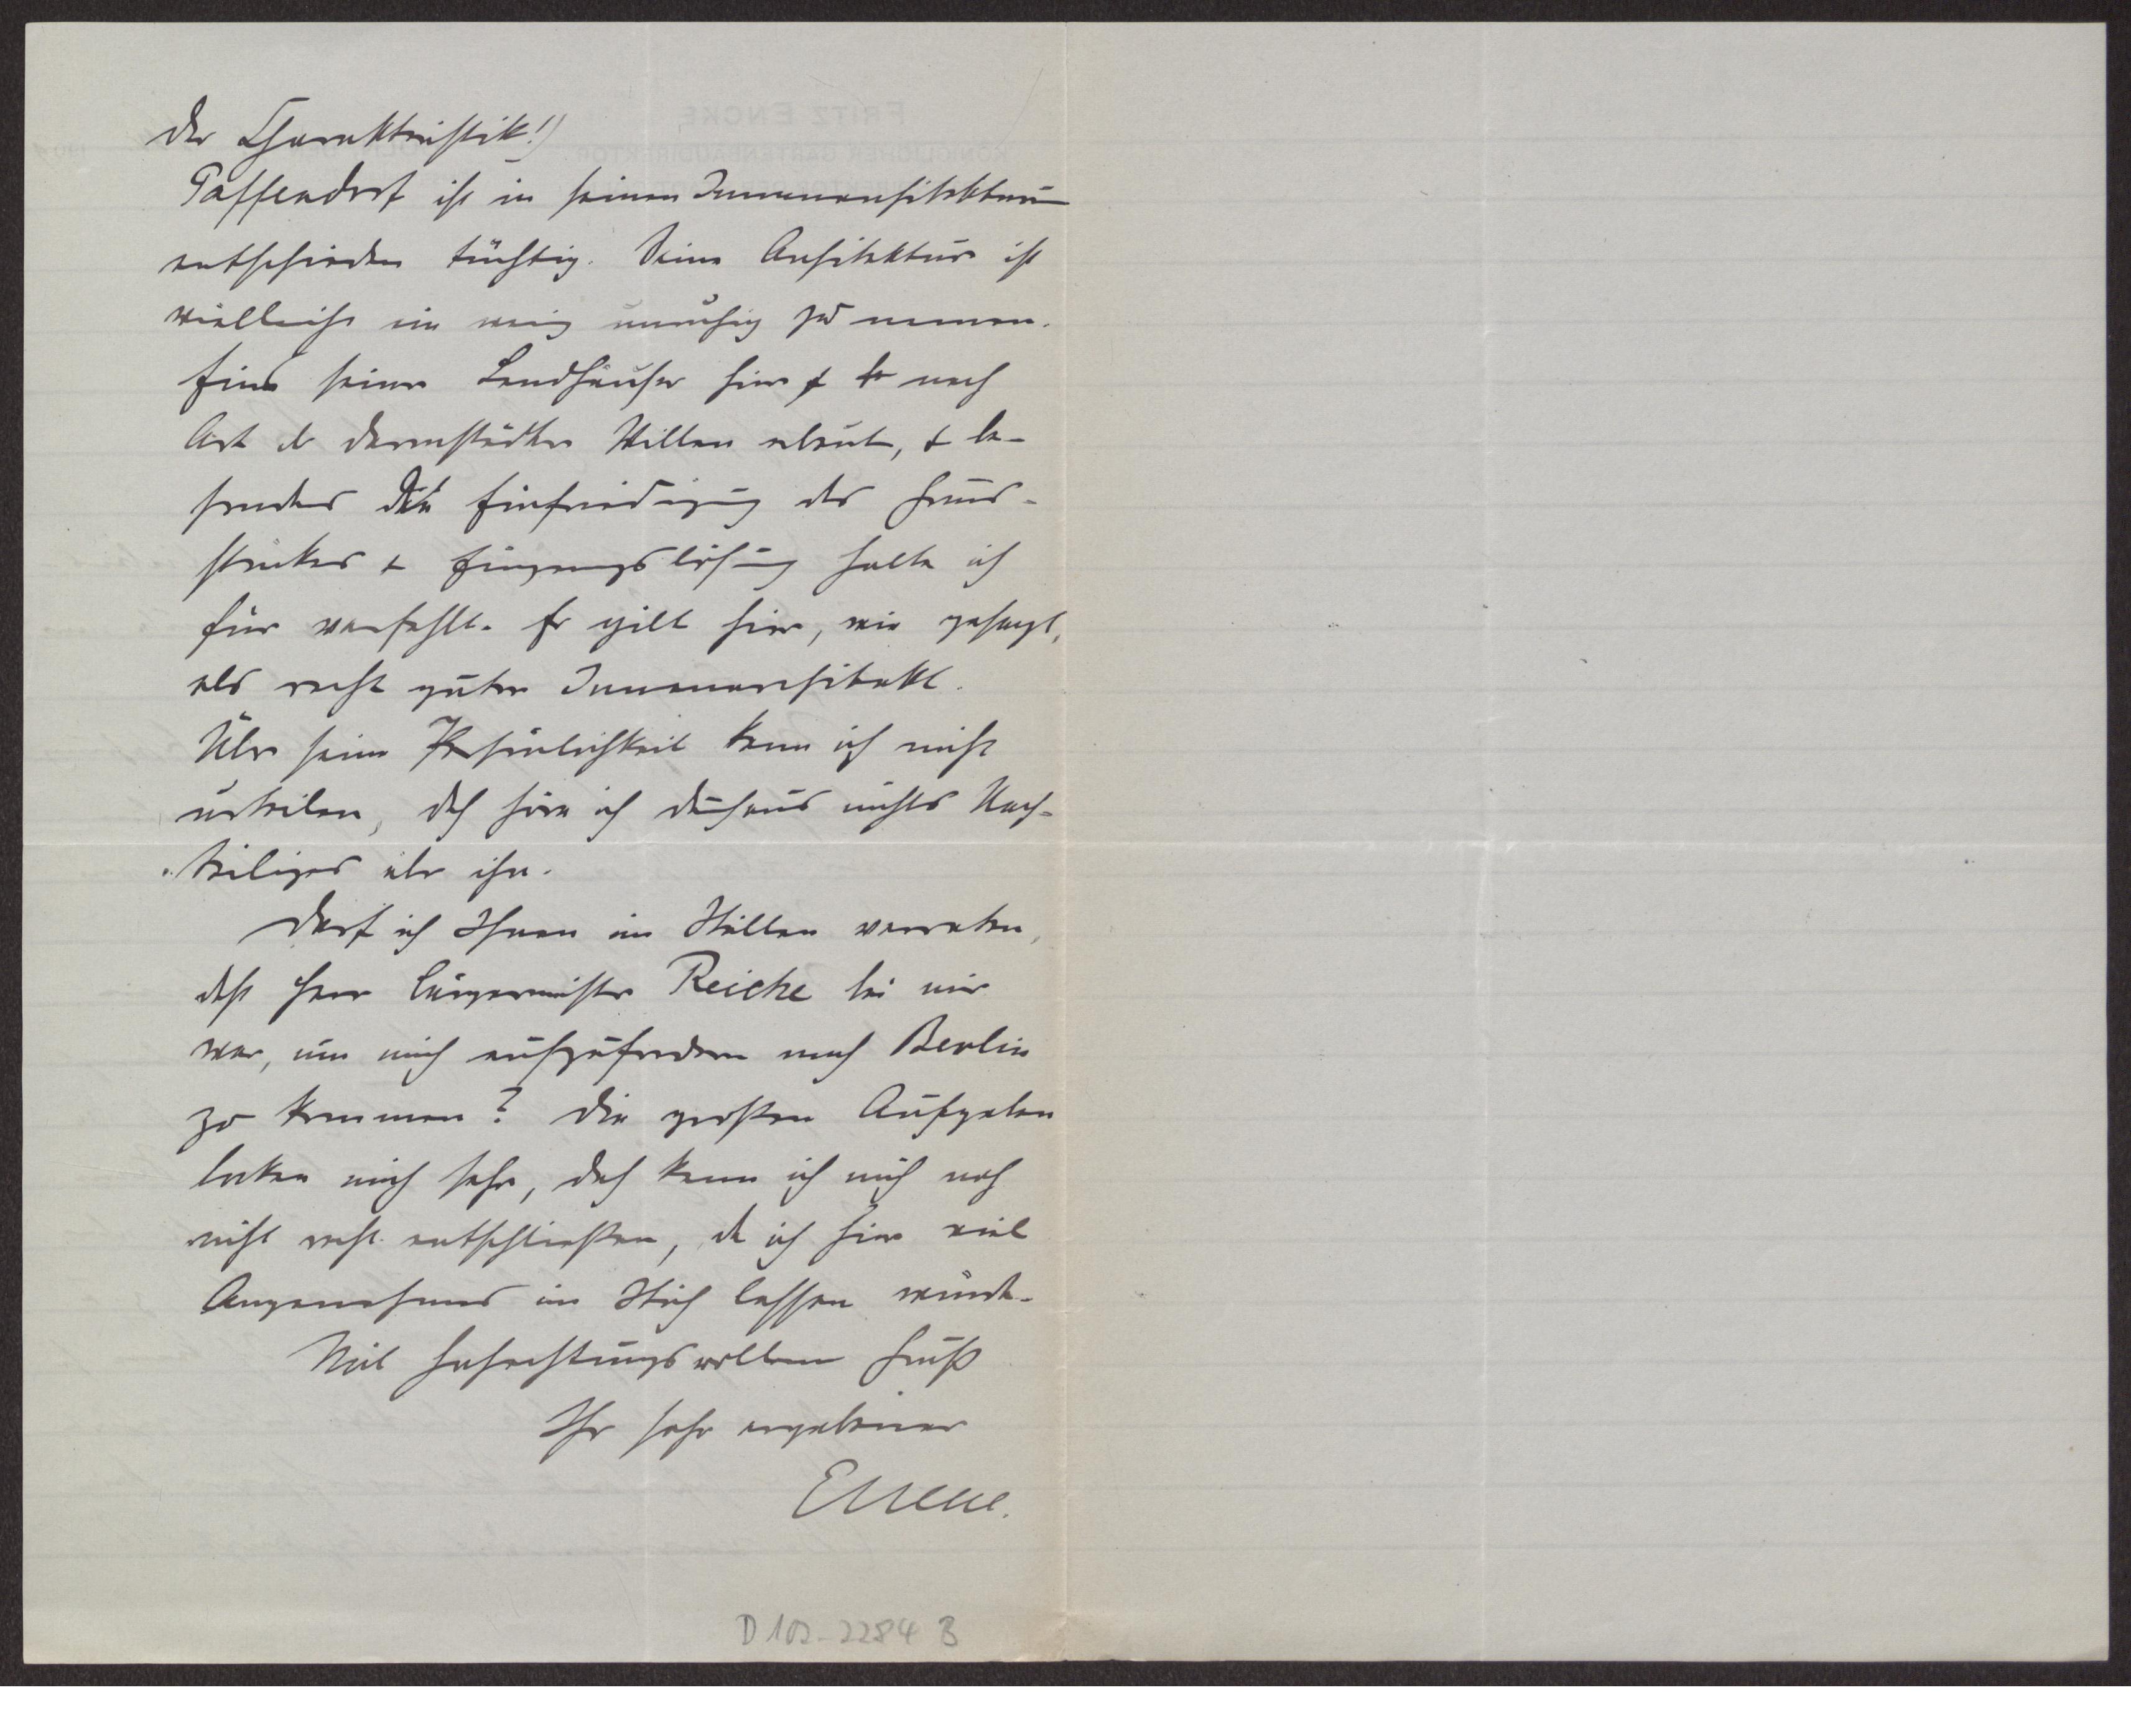 der Charakteristik!)
Paffendorf ist in seinen Innenarchitekturen
entschieden tüchtig. Seine Architektur ist
vielleicht ein wenig unruhig zu nennen.
Eines seiner Landhäuser hier nach
Art der Darmstädter Villen erbaut, + be-
sonders die Einfriedigung des Grund-
stückes + Eingangslösung halte ich
für verfehlt. Er gilt hier, wie gesagt,
als recht guter Innenarchitekt.
Über seine Persönlichkeit kann ich nicht
urteilen, doch höre ich durchaus nichts Nach-
teiliges über ihn.
Darf ich Ihnen im Stillen verraten,
daß Herr Bürgermeister Reicke bei mir
war, um mich aufzufordern nach Berlin
zu kommen? Die großen Aufgaben
locken mich sehr, doch kann ich mich noch
nicht recht entschließen, da ich hier viel
Angenehmes im Stich lassen würde.
Mit hochachtungsvollem Gruß
Ihr sehr ergebener
Encke.
D 102-2284 B
FRITZ ENCKE,
KÖNIGLICHER GARTENBAUDIREKTOR